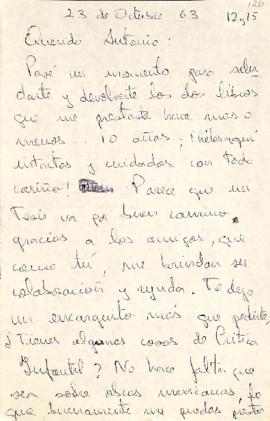 126
23 de Octubre 63 12,15
Querido Antonio:
Pasé un momento para salu-
darte y devolverte los dos libros
que me prestaste hace mas o
menos... 10 años; ¡hélos aquí
intactos y cuidados con todo
cariño! Parece que mi
Tesis va por buen camino,
gracias a los amigos, que
como tú, me brindan su
colaboración y ayuda. Te dejo
un encarguito más que pedirte,
¿Tienes algunas cosas de Crítica
Infantil? No hace falta que
sea sobre obras mexicanas, lo
que buenamente me puedas prestar